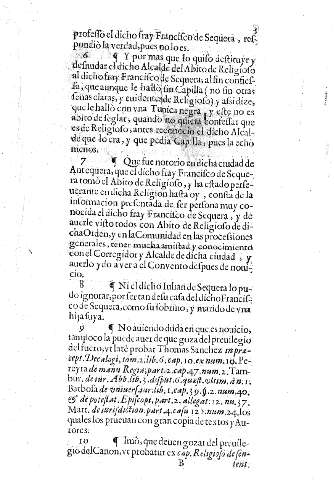 3
professo el dicho fray Francisco de Sequera, res-
pondiò la verdad, pues no lo es.
6 ¶ Y por mas que lo quiso destituye y
desnudar el dicho Alcalde del Abito de Religioso
al dicho fray Francisco de Sequera, al fin confies-
sa, que aunque le hallò sin Capilla (no sin otras
señas claras, y euidentes de Religioso) y assi dize,
que le hallò con vna Tunica negra, y esta no es
abito de seglar, quando no quiera confessar que
es de Religioso, antes reconociò el dicho Alcal-
de que lo era, y que pedia Capilla, pues la echò
menos.
7 ¶ Que fue notorio en dicha ciudad de
Antequera, que el dicho fray Francisco de Seque-
ra tomò el Abito de Religioso, y ha estado perse-
uerante en dicha Religion hasta oy, consta de la
informacion presentada de ser persona muy co-
nocida el dicho fray Francisco de Sequera, y de
auerle visto todos con Abito de Religioso de di-
cha Orden, y en la Comunidad en las processiones
generales, tener mucha amistad y conocimiento
con el Corregidor y Alcalde de dicha ciudad, y
auerlo ydo a ver a el Conuento despues de noui-
cio.
8 ¶ Ni el dicho Iulian de Sequera lo pu-
do ignorar, por ser tan de su casa del dicho Francis-
co de Sequera, como su sobrino, y marido de vna
hija suya.
9 ¶ No auiendo duda en que es nouicio,
tampoco la puede auer de que goza del preuilegio
del fuero, vt latè probat Thomas Sanchez in præ-
cept. Decalogi, tom. 2. lib. 6. cap. 10. ex num. 10. Pe-
reyra de manu Regia, part. 2. cap. 47. num. 2. Tam-
bur. de iur. Abb. lib. 3. disput. 6. quæst. vltim. à n. 1.
Barbosa de vniuersal iur. lib. 1. cap. 39. §. 2. num. 40.
et de potestat. Episcopi, part. 2. allegat. 12. nu. 37.
Matt. de iurisdiction. part. 4. casu 12. num. 24. los
quales los prueuan con gran copia de textos y Au-
tores.
10 ¶ Imò, que deuen gozar del preuile-
gio del Canon, vt probatur ex cap. Religioso de sen-
B tent.